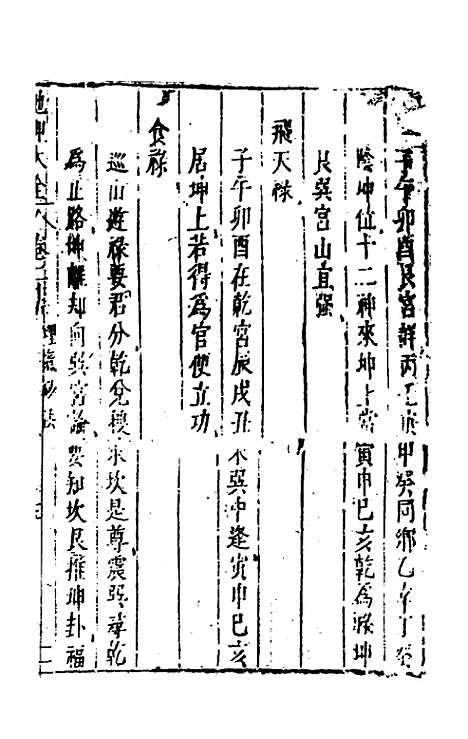 子午卯酉艮宮詳丙庚甲癸同鄉乙辛丁
陰坤位十二神來坤上當寅申巳亥乾為祿坤
艮巽宮山直強
飛天祿
子午卯酉在乾宮辰戌丑未巽中逢寅申巳亥
居坤上若得為官便立功
食祿
巡山遊祿要君分乾兌稷求坎是尊震巽尋乾
為正路坤離却向巽宮論要知坎艮推坤卦福
地理大全